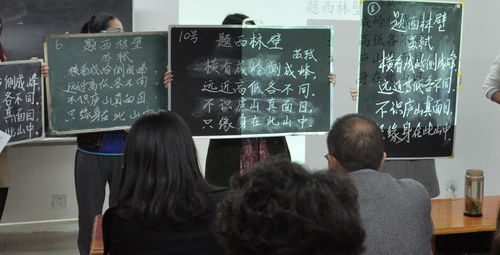 侧成峰
各不同.
面目.
此山中.
6 题西林壁
苏轼
横看成岭侧成峰
远近高低各不同.
不识庐山真面目
只缘身在此山中.
10号 题西林壁
苏轼
横看成岭侧成峰.
远近高低各不同.
不识庐山真面目.
只缘身在此山中.
题西林壁
题西林壁
苏轼
横看成岭侧成峰
远近高低各不同.
不识庐山真面目.
只缘身在此山中.